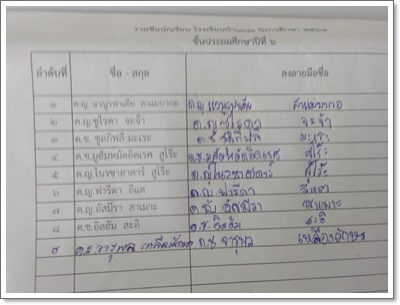 รายชื่อนักเรียน โรงเรียนบ้าน ปีการศึกษา ๒๕๖๑
ชั้นประถมศึกษาปีที่ ๖
ลำดับที่ ชื่อ - สกุล ลงลายมือชื่อ
๑ ด.ญ.
๒ ด.ญ.ซูไรดา จะจ๋า ด.ญ.ซูไรดา จะจ๋า
๓ ด.ช. ซูลกิฟลี มะเระ ด.ช. มะเระ
๔ ด.ช.มูฮัมหมัดอิดเรศ สูโร๊ะ ด.ช.มูฮัมหมัดอิดเรศ สูโร๊ะ
๕ ด.ญ. สูโร๊ะ ด.ญ. สูโร๊ะ
๖ ด.ญ.ฟารีดา อีแต ด.ญ.ฟารีดา อีแต
๗ ด.ญ.อัสมีรา สาเมาะ ด.ญ. อัสมีรา สาเมาะ
๘ ด.ช.อิลฮัม สะอิ ด.ช.อิลฮัม สะอิ
๙ ด.ช. จารุพล ด.ช จารุพล